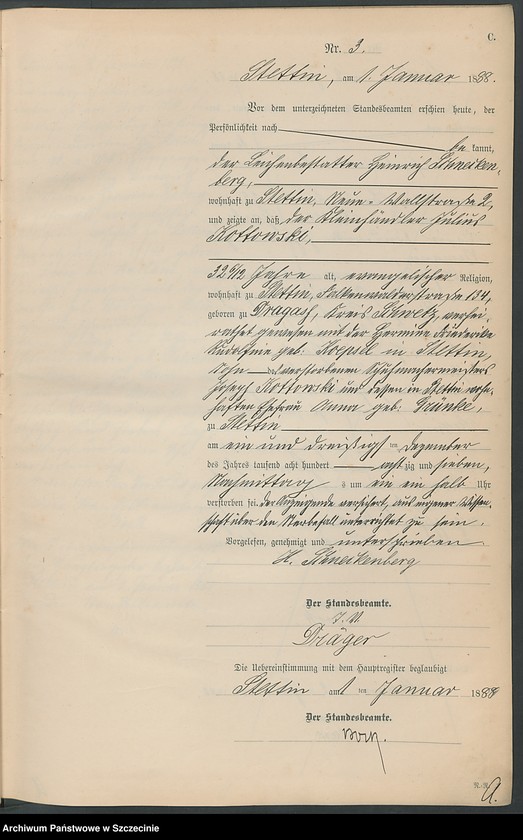 C.
Nr. 3.
Stettin, am 1. Januar 1888.
Vor dem unterzeichneten Standesbeamten erschien heute, der
Persönlichkeit nach
be kannt,
der Leichenbestatter Heinrich Schneiken-
berg,
wohnhaft zu Stettin, Neue-Wallstraße 2,
und zeigte an, daß der Kleinhändler Julius
Kottowski,
32 6/12 Jahre alt, evangelischer Religion,
wohnhaft zu Stettin, Falkenwalderstraße 134,
geboren zu Dragash, Kreis Schwetz, verhei-
rathet gewesen mit der Hermine Friederike
geb. Koepsel in Stettin,
Sohn des verstorbenen Schuhmachermeisters
Joseph Kottowski und dessen in Stettin wohn-
haften Ehefrau Anna geb. Grünke,
zu Stettin
am ein und dreißigsten Dezember
des Jahres tausend acht hundert achtzig und sieben,
Nachmittags um ein ein halb Uhr
verstorben sei. Der Anzeigende versichert, aus eigener Wissen-
schaft über den Sterbefall unterrichtet zu sein.
Vorgelesen, genehmigt und unterschrieben
H. Schneikenberg
Der Standesbeamte.
J. V.
Dräger
Die Uebereinstimmung mit dem Hauptregister beglaubigt
Stettin am 1 ten Januar 1888
Der Standesbeamte.
Archiwum Państwowe w Szczecinie